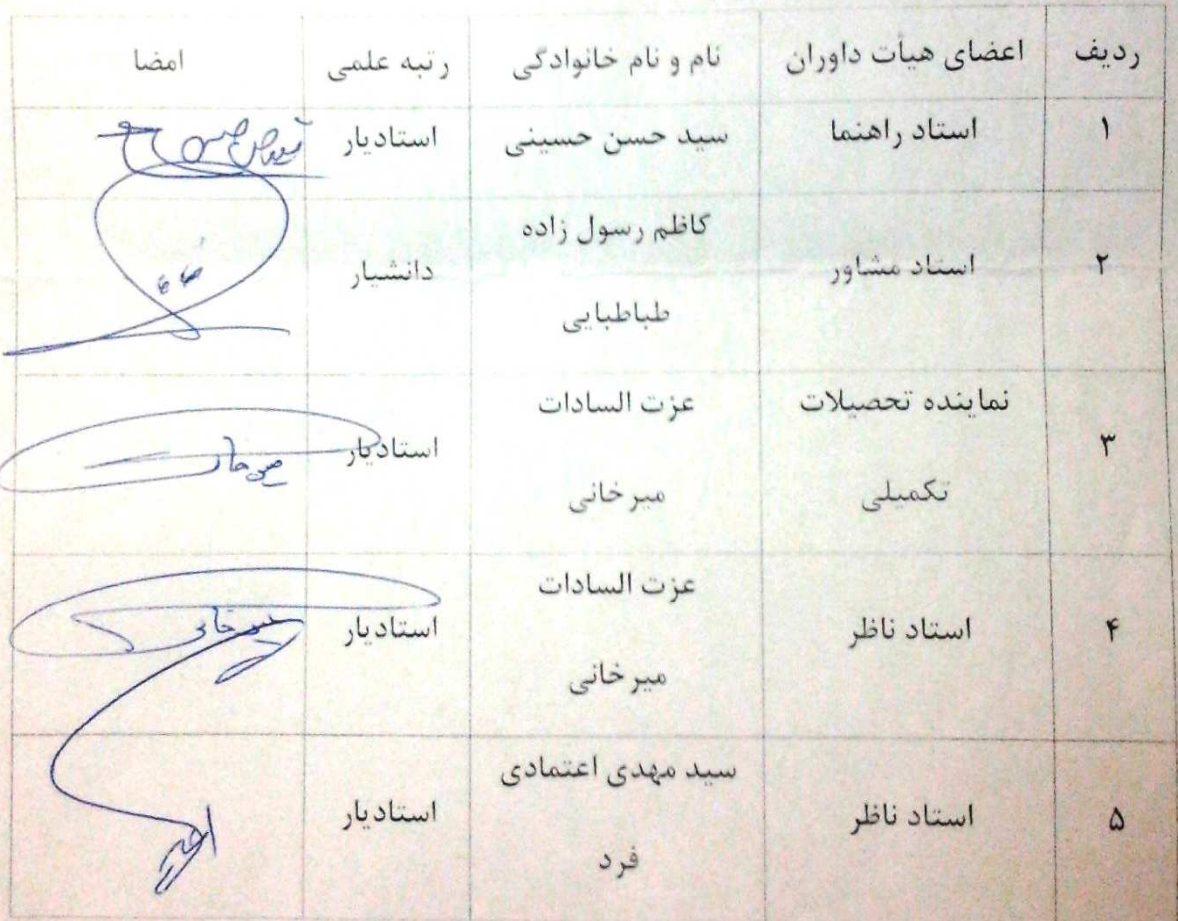 ردیف اعضای هیأت داوران نام و نام خانوادگی رتبه علمی امضا
۱ استاد راهنما سید حسن حسینی استادیار
۲ استاد مشاور کاظم رسول زاده طباطبایی دانشیار
۳ نماینده تحصیلات تکمیلی عزت السادات میرخانی استادیار
۴ استاد ناظر عزت السادات میرخانی استادیار میرخانی
۵ استاد ناظر سید مهدی اعتمادی فرد استادیار